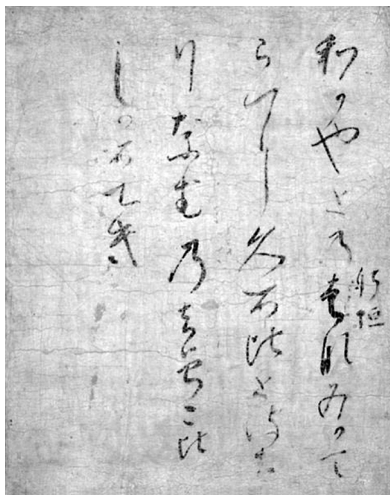 躬恒
わかやとのはなみかて
らにくるひとはち
りなむのちそこひ
しかるへき